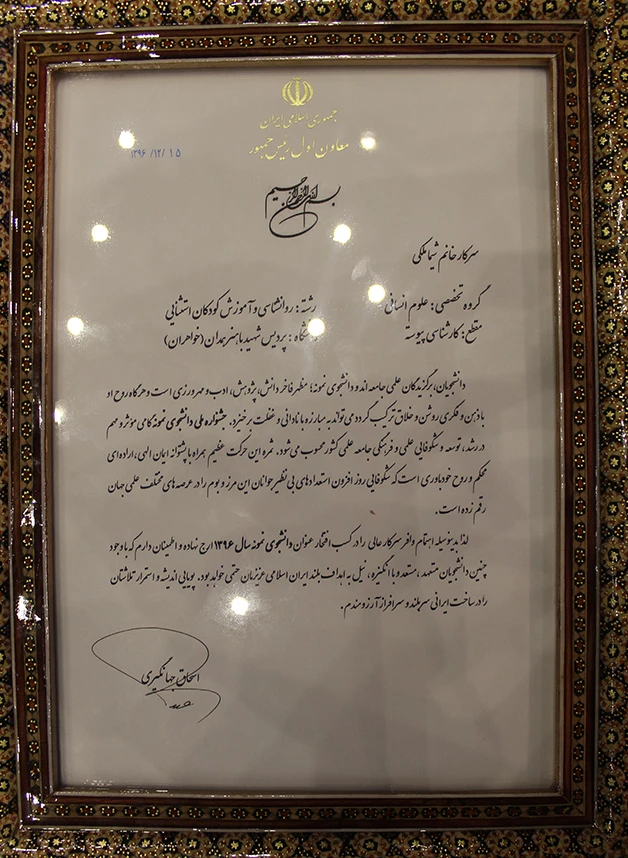 جمهوری اسلامی ایران
معاون اول رئیس جمهور
۱۳۹۶/۱۲/۱۵
بسم الله الرحمن الرحیم
سرکار خانم شیما ملکی
گروه تخصصی: علوم انسانی رشته: روانشناسی و آموزش کودکان استثنایی
مقطع: کارشناسی پیوسته دانشگاه: پردیس شهید باهنر همدان (خواهران)
دانشجویان، برگزیدگان علمی جامعه اند و دانشجوی نمونه؛ مظهر فاخر دانش، پژوهش، ادب و مهرورزی است و هرگاه روح او
با ذهن و فکری روشن و خلاق ترکیب گردد می تواند به مبارزه با نادانی و غفلت برخیزد. جشنواره ملی دانشجوی نمونه گامی مؤثر و مهم
در رشد، توسعه و شکوفایی علمی و فرهنگی جامعه علمی کشور محسوب می شود. ثمره این حرکت عظیم همراه با پشتوانه ایمان الهی، اراده ای
محکم و روح خودباوری است که شکوفایی روز افزون استعدادهای بی نظیر جوانان این مرز و بوم را در عرصه های مختلف علمی جهان
رقم زده است.
لذا بدینوسیله اهتمام وافر سرکار عالی را در کسب افتخار عنوان دانشجوی نمونه سال ۱۳۹۶ ارج نهاده و اطمینان دارم که با وجود
چنین دانشجویان متعهد، مستعد و با انگیزه، نیل به اهداف بلند ایران اسلامی عزیزمان حتمی خواهد بود. پویایی اندیشه و استمرار تلاشتان
را در ساخت ایرانی سربلند و سرافراز آرزومندم.
اسحاق جهانگیری